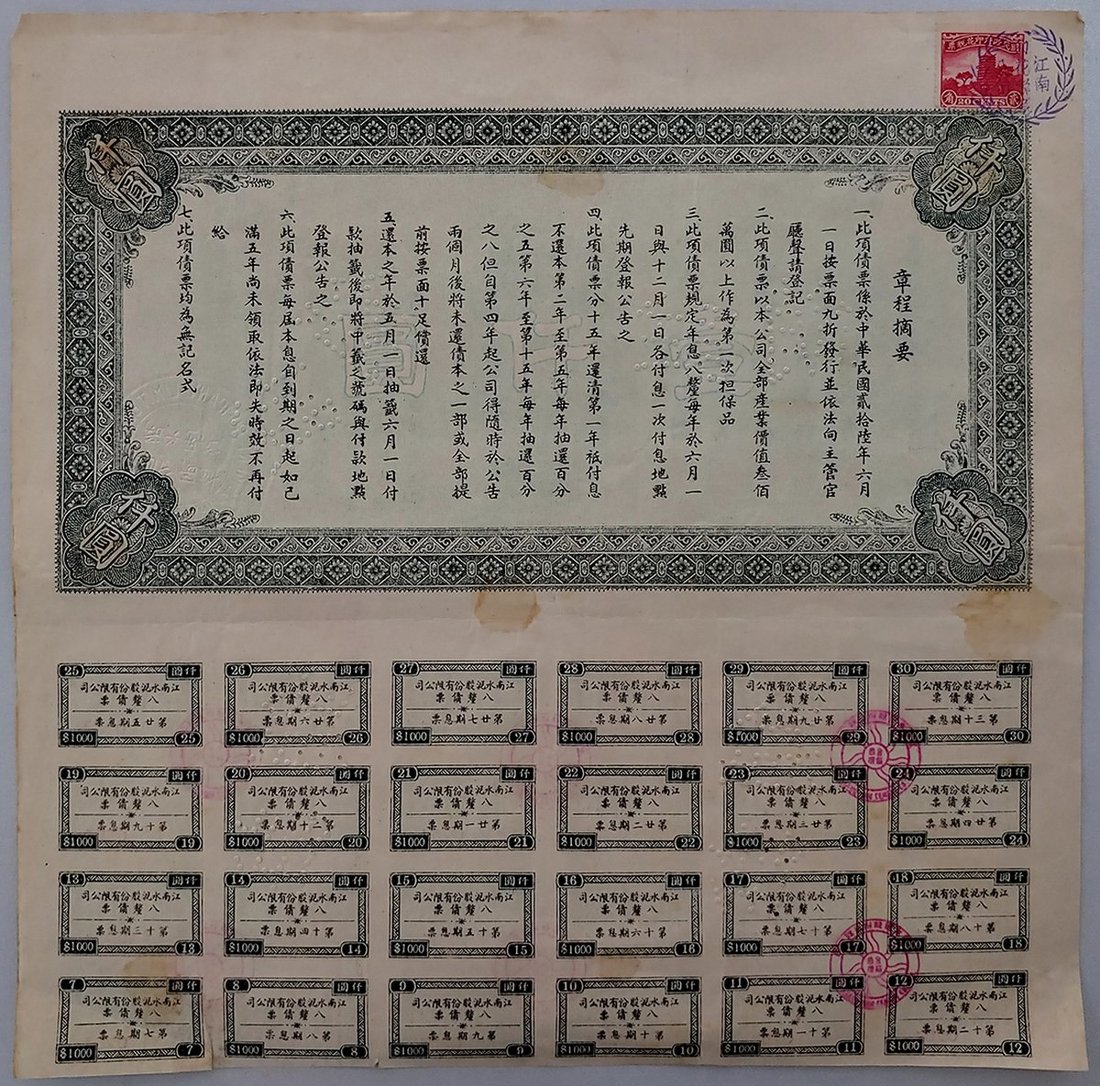 江南
20 CENTS
貳
角
仟圓
仟圓
章程摘要
一、此項債票係於中華民國貳拾陸年六月
一日按票面九折發行並依法向主管官
廳聲請登記
二、此項債票以本公司全部產業價值叁佰
萬圓以上作為第一次担保品
三、此項債票規定年息八釐每年於六月一
日與十二月一日各付息一次付息地點
先期登報公告之
四、此項債票分十五年還清第一年祇付息
不還本第二年至第五年每年抽還百分
之五第六年至第十五年每年抽還百分
之八但自第四年起公司得隨時於公告
兩個月後將未還債本之一部或全部提
前按票面十足償還
五、還本之年於五月一日抽籤六月一日付
款抽籤後即將中籤之號碼與付款地點
登報公告之
六、此項債票每屆本息自到期之日起如已
滿五年尚未領取依法即失時效不再付
給
七、此項債票均為無記名式
壹仟圓
仟圓
仟圓
25 仟圓
江南水泥股份有限公司
八釐債票
第廿五期息票
$1000 25
26 仟圓
江南水泥股份有限公司
八釐債票
第廿六期息票
$1000 26
27 仟圓
江南水泥股份有限公司
八釐債票
第廿七期息票
$1000 27
28 仟圓
江南水泥股份有限公司
八釐債票
第廿八期息票
$1000 28
29 仟圓
江南水泥股份有限公司
八釐債票
第廿九期息票
$1000 29
30 仟圓
江南水泥股份有限公司
八釐債票
第三十期息票
$1000 30
19 仟圓
江南水泥股份有限公司
八釐債票
第十九期息票
$1000 19
20 仟圓
江南水泥股份有限公司
八釐債票
第二十期息票
$1000 20
21 仟圓
江南水泥股份有限公司
八釐債票
第廿一期息票
$1000 21
22 仟圓
江南水泥股份有限公司
八釐債票
第廿二期息票
$1000 22
23 仟圓
江南水泥股份有限公司
八釐債票
第廿三期息票
$1000 23
24 仟圓
江南水泥股份有限公司
八釐債票
第廿四期息票
$1000 24
13 仟圓
江南水泥股份有限公司
八釐債票
第十三期息票
$1000 13
14 仟圓
江南水泥股份有限公司
八釐債票
第十四期息票
$1000 14
15 仟圓
江南水泥股份有限公司
八釐債票
第十五期息票
$1000 15
16 仟圓
江南水泥股份有限公司
八釐債票
第十六期息票
$1000 16
17 仟圓
江南水泥股份有限公司
八釐債票
第十七期息票
$1000 17
18 仟圓
江南水泥股份有限公司
八釐債票
第十八期息票
$1000 18
7 仟圓
江南水泥股份有限公司
八釐債票
第七期息票
$1000 7
8 仟圓
江南水泥股份有限公司
八釐債票
第八期息票
$1000 8
9 仟圓
江南水泥股份有限公司
八釐債票
第九期息票
$1000 9
10 仟圓
江南水泥股份有限公司
八釐債票
第十期息票
$1000 10
11 仟圓
江南水泥股份有限公司
八釐債票
第十一期息票
$1000 11
12 仟圓
江南水泥股份有限公司
八釐債票
第十二期息票
$1000 12